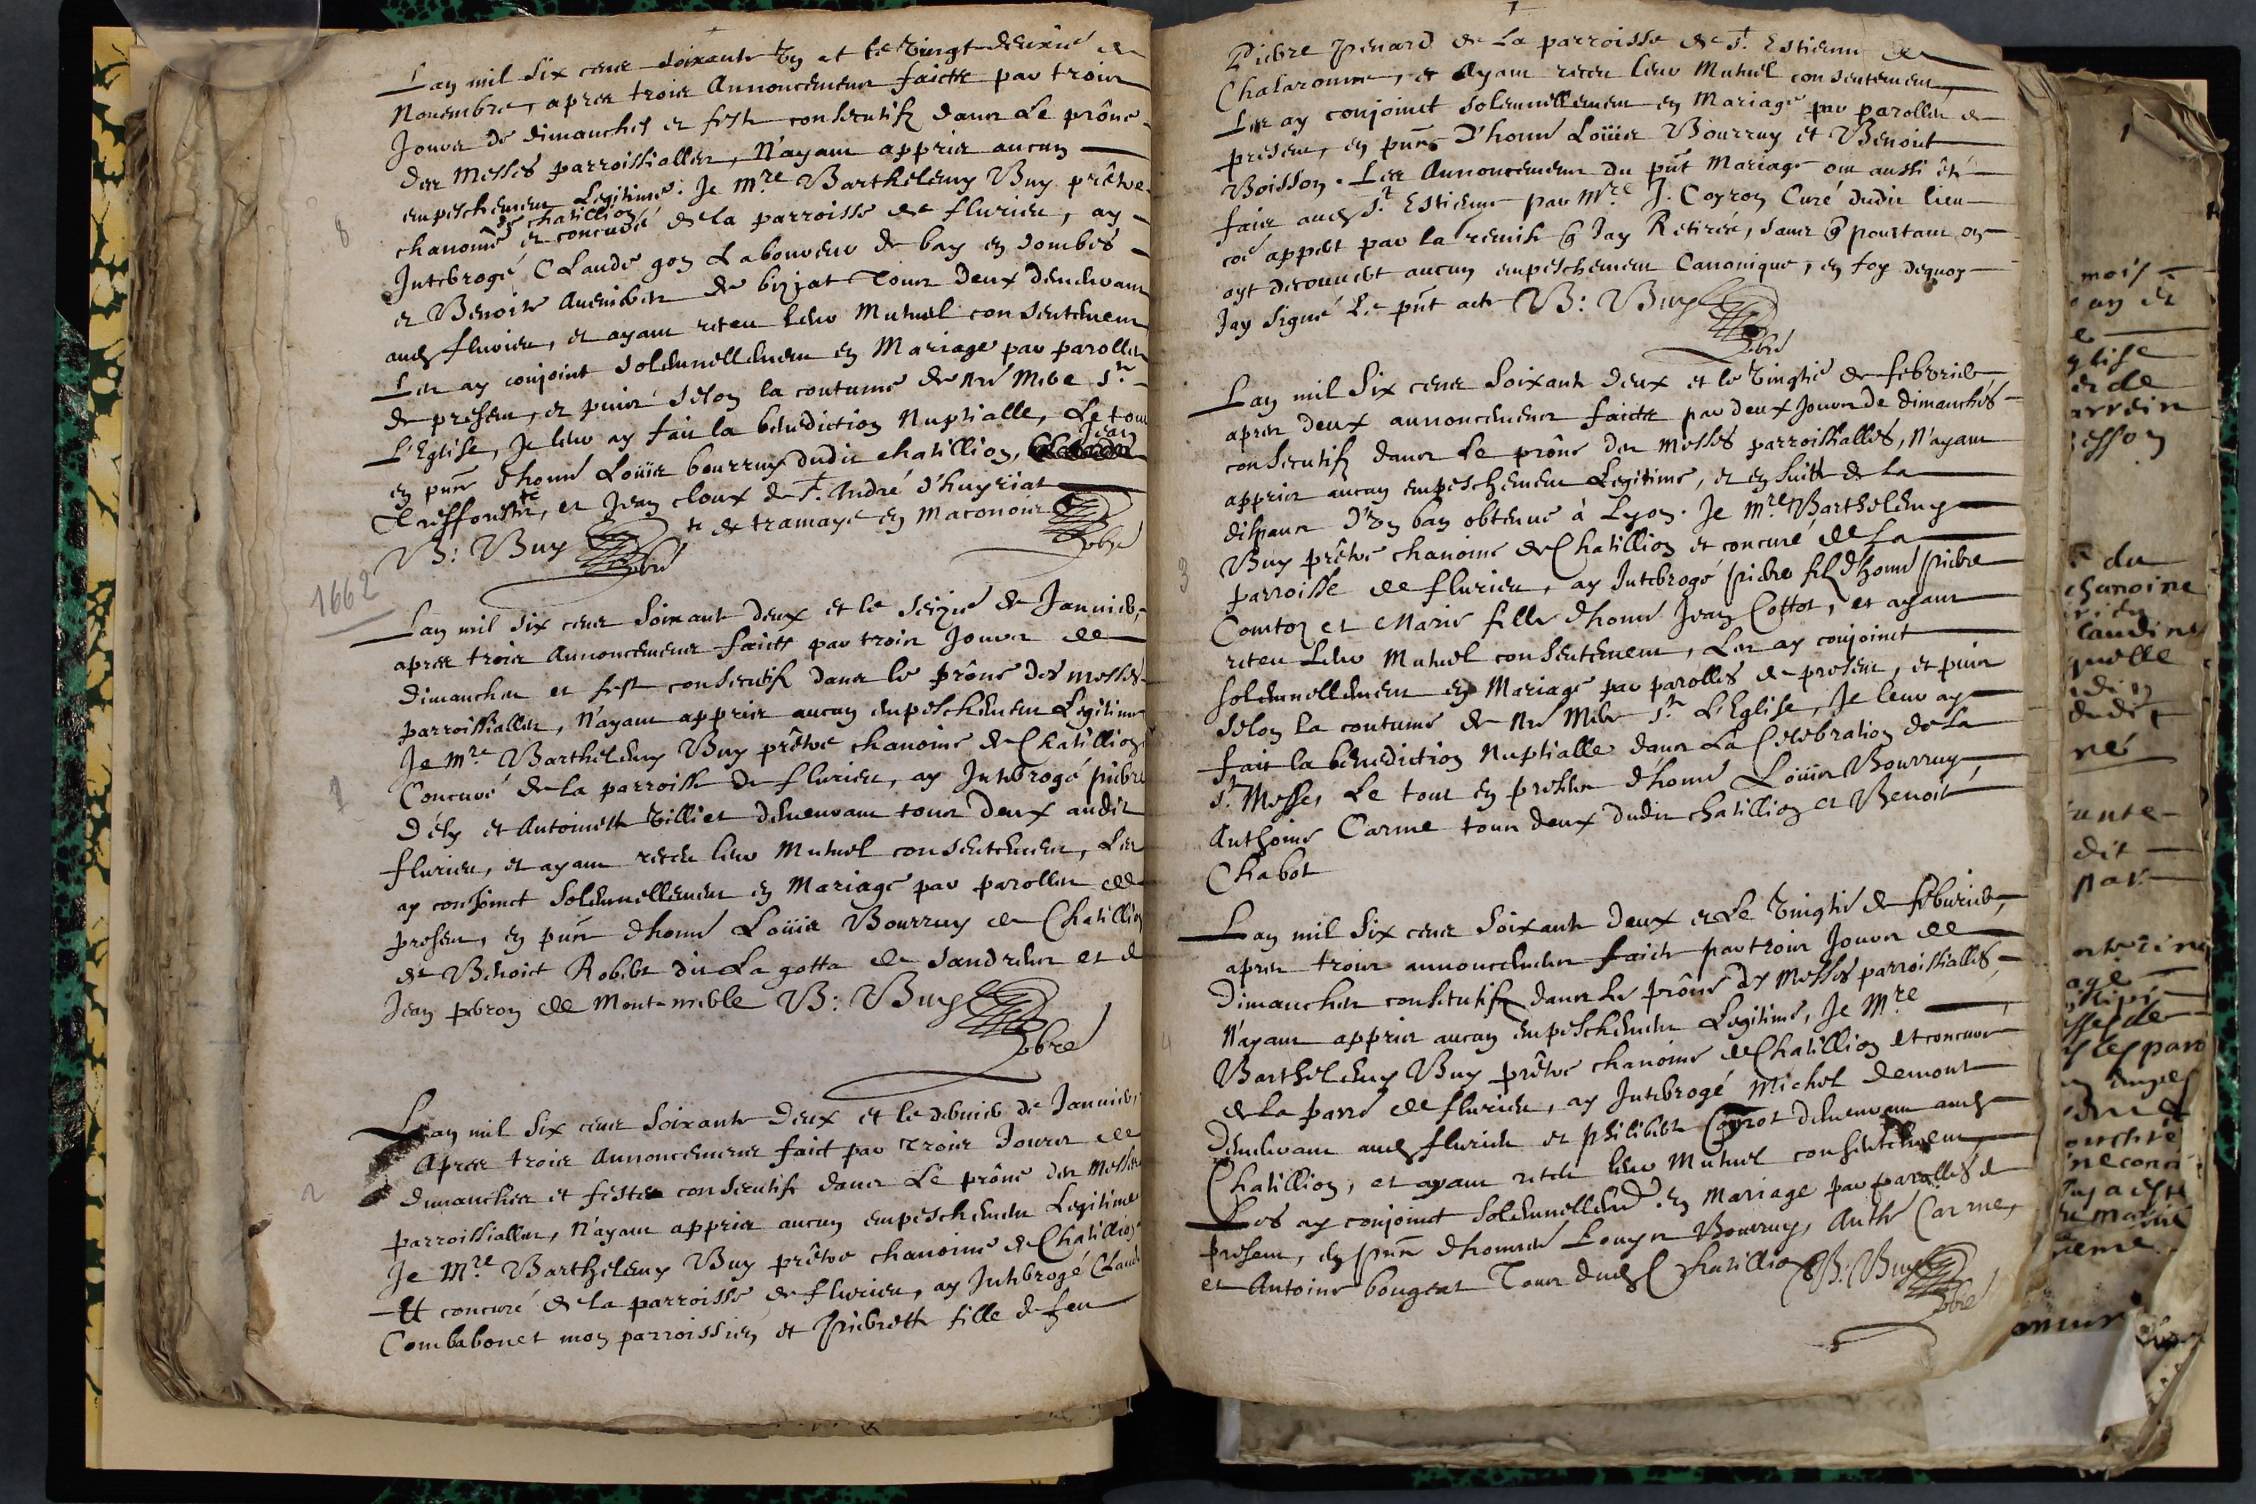 Lan mil six cent soixante Un et le Vingt deuxie de
Novembre, apres trois Annoncemens faicte par trois
Jours de dimanches et feste consecutifz dans Le prône
des Messes parroissialles, N'ayant appris aucun
empeschement Legitime. Je Mre Barthelemy Buy prêtre
de chatillion
chanoine et concuré de la parroisse de flurieu, ay
8
Interrogé Claude gon Laboureur de bay en dombes
et Benoite de biziat Tous deux demeurant
aud flurieu, et ayant receu leur Mutuel consentement
Les ay conjoint solemnellement en Mariage par parolles
de present, et puis selon la coutume de nre Mere Ste
L'Eglise, Je leur ay fait la benediction Nuptialle, Le tout
en pnce d'honn Loüis bourruy dudit chatillion, Jean
et Jean cloux de St. André d'huyriat
te de tramaye en Maconois
B: Buy pbre
1662
Lan mil six cent soixante deux et le seizie de Janvier,
apres trois Annoncemens faicts par trois Jours de
dimanches et feste consecutifz dans le prône des messes
parroissialles, N'ayant appris aucun empeschement Legitime
Je Mre Barthelemy Buy prêtre chanoine de Chatillion
Concuré de la parroisse de flurieu, ay Interrogé pierre
1
d'ély et Antoinette Villiet demeurant tous deux audit
flurieu, et ayant receu leur Mutuel consentement, Les
ay conjoinct solemnellement en Mariage par parolles de
present, en pnce d'honn Loüis Bourruy de Chatillion
de Benoict Robert dit La gotta de Sandrens et de
Jean peron de Montmerble B: Buy
pbre
Lan mil six cent soixante deux et le dernier de Janvier,
Apres trois Annoncemens faict par Trois Jours de
dimanches et festes consecutifz dans Le prône des Messes
2
parroissialles, N'ayant appris aucun empeschement Legitime
Je Mre Barthelemy Buy prêtre chanoine de Chatillion
Et concuré de la parroisse de flurieu, ay Interrogé Claude
Combabonet mon parroissien et Pierrette fille de feu
Pierre penard de la parroisse de St. Estienne de
Chalaronne, et Ayant receu leur Mutuel consentement
Les ay conjoinct solemnellement en Mariage par parolles de
present, en pnce d'honn Loüis Bourruy et Benoit
Boisson. Les Annoncemens du pnt Mariage ont aussi été
faits aud St. Estienne par Mre J. Coyron Curé dudit lieu
coe appert par la remise que Jay Retirée, sans que pourtant on
ayt decouvert aucun empeschement Canonique, en foy dequoy
Jay signé Le pnt acte B: Buy
pbre
Lan mil six cent soixante deux et le Vingtie de febvrier
apres deux annoncemens faicte par deux Jours de dimanches
consecutifz dans Le prône des Messes parroissialles, N'ayant
appris aucun empeschement Legitime, et en suitte de la
dispense d'Un ban obtenue à Lyon. Je Mre Barthelemy
Buy prêtre chanoine de Chatillion et concuré de la
3
parroisse de flurieu, ay Interrogé pierre filz d'honn pierre
Comton et Marie fille d'honn Jean Cottot, et ayant
receu Leur Mutuel consentement, Les ay conjoinct
solemnellement en Mariage par parolles de present, et puis
selon la coutume de nre Mere Ste L'Eglise, Je leur ay
fait la benediction Nuptialle dans La Celebration de la
Ste Messe, Le tout en presence d'honn Loüis Bourruy,
Anthoine Carme tous deux dudit chatillion et Benoit
Chabot
Lan mil six cent soixante deux et Le Vingtie de febvrier,
apres trois annoncemens faicts par trois Jours de
dimanches consecutifz dans Le prône des Messes parroissialles,
N'ayant appris aucun empeschement Legitime, Je Mre
4
Barthelemy Buy prêtre chanoine de Chatillion et concuré
de la parre de flurieu, ay Interrogé Michel demont
demeurant aud flurieu et philiberte demeurant aud
Chatillion, et ayant receu leur Mutuel consentement,
Les ay conjoinct solemnellemt en Mariage par parolles de
present, en pnce d'honn Louys Bourruy, Anthe Carme,
et Antoine bougeat Tous dud Chatillion B: Buy
pbre